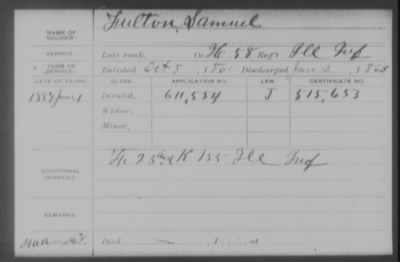 NAME OF SOLDIER: Fulton, Samuel
SERVICE: Late rank, Co. H, 58 Reg't Ill Inf
TERM OF SERVICE: Enlisted Oct 5, 186 Discharged Jan 1865
DATE OF FILING. CLASS. APPLICATION NO. LAW. CERTIFICATE NO.
1887 June 1 Invalid, 611,554 J 515,653
Widow,
Minor,
ADDITIONAL SERVICES: K 155 Ill Inf
REMARKS:
Died